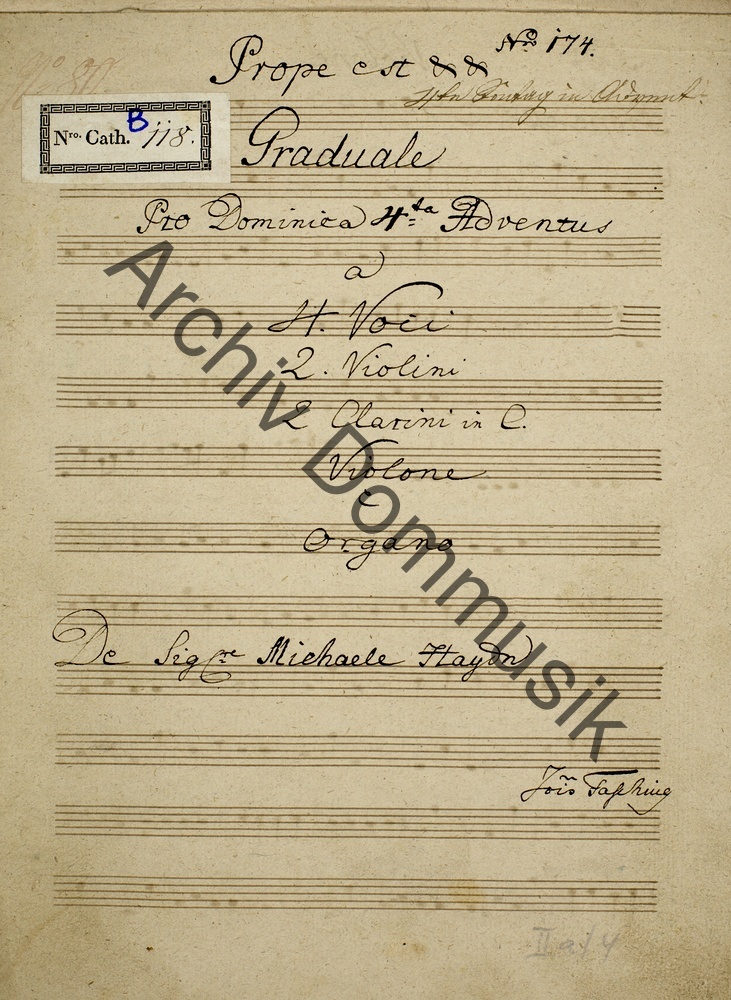 Nro 174.
Prope est
4ten Sontag in Advent.
Nro. Cath. B 118.
Graduale
Pro Dominica 4ta Adventus
a
4. Voci
2. Violini
2 Clarini in C.
Violone
e
Organo
De Sigre Michaele Haydn
Archiv Dommusik
II a/4